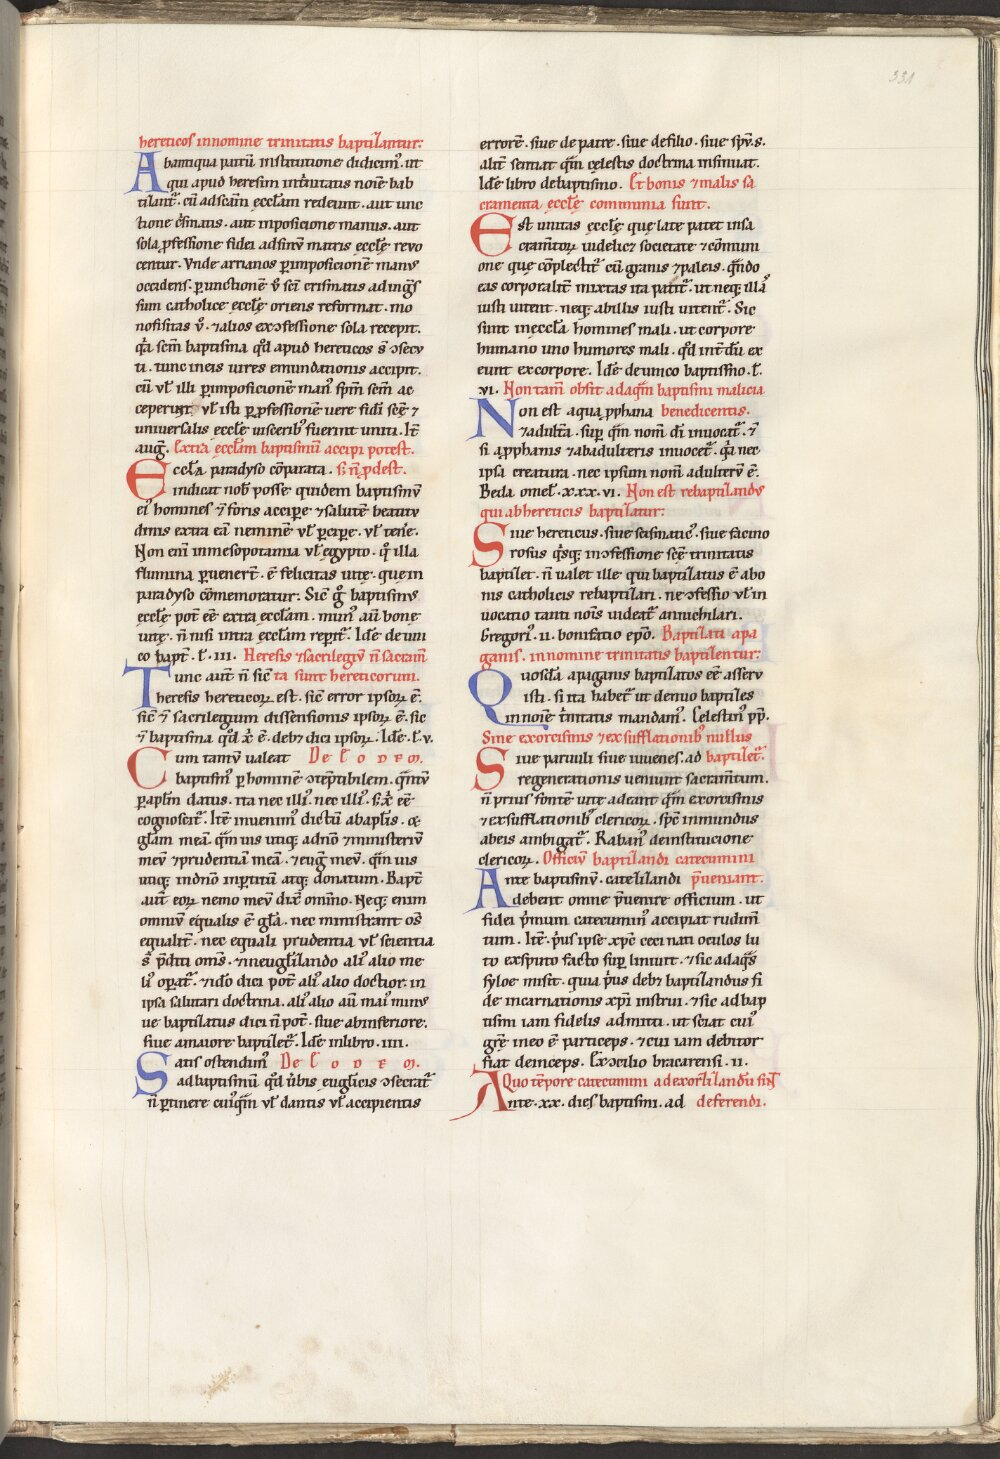 331
hereticos in nomine trinitatis baptizantur:
Ab antiqua patrũ institutione didicim᷒. ut
qui apud heresim in tͥnitatis noĩe bap
tizant᷑. cũ ad scãm eccłam redeunt. aut unc
tione cͥsmatis. aut inposicione manus. aut
sola ꝓfessione fidei ad sinũ matris ecclę revo
centur. Vnde arrianos ꝑ imposicionẽ manꝰ
occidens. ꝑ unctionẽ ṽ scĩ crismatis ad ingͥs
sum catholice ecclę oriens reformat. mo
nofisitas ṽ. ⁊ alios ex ɔfessione sola recepit.
qͥa scm̃ baptisma qd̃ apud hereticos s̃ ɔsecu
ti. tunc in eis uires emundationis accipit.
cũ uł illi ꝑ imposicionẽ manꝰ spm̃ scm̃ ac
ceperunt. uł isti ꝑ ꝓfessionẽ uere fidi scę ⁊
universalis ecclę visceribꝰ fuerint uniti. Itẽ
aug̃. Extra eccłam baptismũ accipi potest.
Eccła paradyso cõparata. s; ñ ꝓdest.
indicat nob̃ posse quidem baptismũ
eiꝰ homines ⁊ foris accipe ⁊ salutẽ beatitu
dinis extra eã neminẽ uł ꝑcipe. uł tenẽ.
Non eni in mesopotamia uł egypto. qͦ illa
flumina ꝑuener̃t. ẽ felicitas uitę. que in
paradyso cõmemoratur: Sic̃ gͦ baptismꝰ
ecclę pot̃ eẽ extra eccłam. munꝰ aũ bonę
uitę. ñ nisi intra eccłam repit᷑. Idẽ de uni
co bapt̃. ł. III. Heresis ⁊ sacrilegiũ ñ sacram̃
Tunc aut̃ ñ sic̃ ta sunt hereticorum.
heresis hereticoꝝ est. sic̃ error ipsoꝝ ẽ.
sic̃ ⁊ sacrilegium dissensionis ipsoꝝ ẽ. sic
⁊ baptisma qd̃ x̃ ẽ. deb; dici ipsoꝝ. Idẽ. ł. v.
Cum tamũ ualeat De Eodem.
baptismꝰ ꝑ hominẽ ɔtẽptibilem. qͣntũ
ꝑ apłm datus. ita nec illiꝰ. nec illiꝰ. s; x̃ eẽ
cognoscit᷑. Itẽ invenimꝰ dictũ ab apłis.
głam meã. qͣm uis utiq; ad nõ ⁊ ministeriũ
meũ ⁊ prudentiã meã. ⁊ eug̃ meũ. qͣm uis
utiq; in dñõ inꝑtitũ atq; donatum. Bapt̃
aut̃ eoꝝ nemo meũ dix̃ om̃ino. Neq; enim
omniũ equalis ẽ gła. nec ministrant oẽs
equalit̃. nec equali prudentia uł scientia
s̃ p̃diti om̃s. ⁊ in euglizando aliꝰ alio me
liꝰ opat᷑. ⁊ idõ dici pot̃ aliꝰ alio doctior. in
ipsa salutari doctrina. aliꝰ alio aũ maiꝰ minꝰ
ue baptizatus dici ñ pot̃. siue ab inferiore.
siue a maiore baptizet᷑. Idẽ in libro. IIII.
Satis ostendimꝰ De Eodem.
ad baptismũ qd̃ ũbis euglicis ɔsecrat᷑
ñ ꝑtinere cuiꝰqͣm uł dantis uł accipientis
errorẽ. siue de patre. siue de filio. siue spũ. s.
alit̃ sentiat qͣm celestis doctrina insinuat.
Idẽ libro de baptismo. Et bonis ⁊ malis sa
cramenta ecclę communia sunt.
Est unitas ecclę que late patet in sa
cram̃toꝝ uidelic; societate ⁊ cõmuni
one que cõplectit᷑ cũ granis ⁊ paleis. qͣndo
eas corporalit̃ mixtas ita patit᷑. ut neq; illã
iusti uitent. neq; ab illis iusti uitent᷑. Sic
sunt in eccła homines mali. ut corpore
humano uno humores mali. qd̃ int̃dũ ex
eunt ex corpore. Idẽ de unico baptism̃o. ł.
vi. Non tam̃ obsit ad aqͣm baptismi malicia
Non est aqua ꝓphana benedicentis.
⁊ adultã. sup qͣm nom̃ dĩ inuocat᷑. ⁊
si a ꝓphanis ⁊ ab adulteris inuocet᷑. qͥa nec
ipsa creatura. nec ipsum nom̃ adulterũ ẽ.
Beda omeł. x.xx.vi. Non est rebaptizandꝰ
qui ab hereticis baptizatur:
Siue hereticus. siue scismaticꝰ. siue facino
rosus qͥsq; in ɔfessione scę trinitatis
baptizet. ñ ualet ille qui baptizatus ẽ a bo
nis catholicis rebaptizari. ne ɔfessio uł in
uocatio tanti noĩs videat᷑ annichilari.
Gregoriꝰ. II. bonifatio ep̃o. Baptizati a pa
ganis. in nomine trinitatis baptizentur:
Quosdã a paganis baptizatos eẽ asseru
isti. si ita habet᷑ ut denuo baptizes
in noĩe tͥnitatis mandamꝰ. Celestinꝰ pp̃.
Sine exorcismis ⁊ exsufflationibꝰ nullus
Siue paruuli siue iuuenes. ad baptizet᷑.
regenerationis ueniunt sacram̃tum.
ñ prius fontẽ uitę adeant qͣm exorcismis
⁊ exsufflationibꝰ clericoꝝ. sp̃c inmundus
ab eis abigat᷑. Rabanꝰ de institucione
clericoꝝ. Officiũ baptizandi catecumini
Ante baptismũ. catezizandi p̃ueniant.
debent omne p̃uenire officium. ut
fidei p̃mum catecuminꝰ accipiat rudim̃
tum. Itẽ. pͥus ipse xp̃c ceci nati oculos lu
to ex sputo facto sup liniuit. ⁊ sic ad aqͣs
syloe misit. quia pͥus deb; baptizandus fi
de incarnationis xp̃i instrui. ⁊ sic ad bap
tism̃ iam fidelis admitti. ut sciat cuiꝰ
grẽ in eo ẽ particeps. ⁊ cui iam debitor
fiat deinceps. Ex ɔcilio bracarensi. II.
A Quo tẽpore catecumini ad exorzizandũ sint
Ante. xx. dies baptismi. ad deferendi.